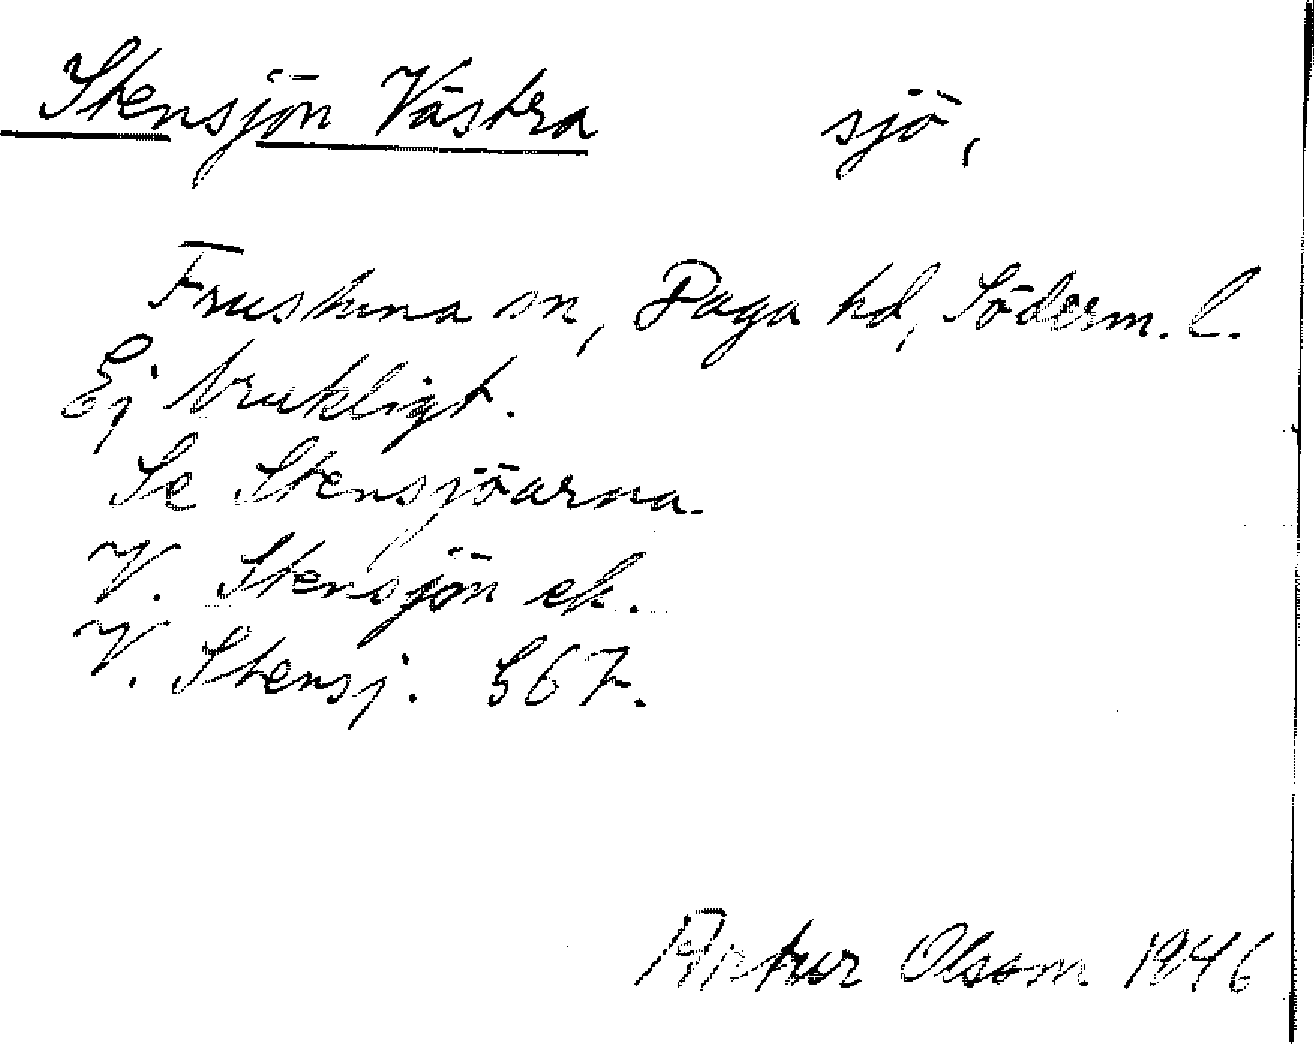 Stensjön Västra sjö,
Frustuna sn, Daga hd, Söderm. l.
Ej brukligt.
Se Stensjöarna.
V. Stensjön ek.
V. Stensj. S67.
Artur Olsson 1946